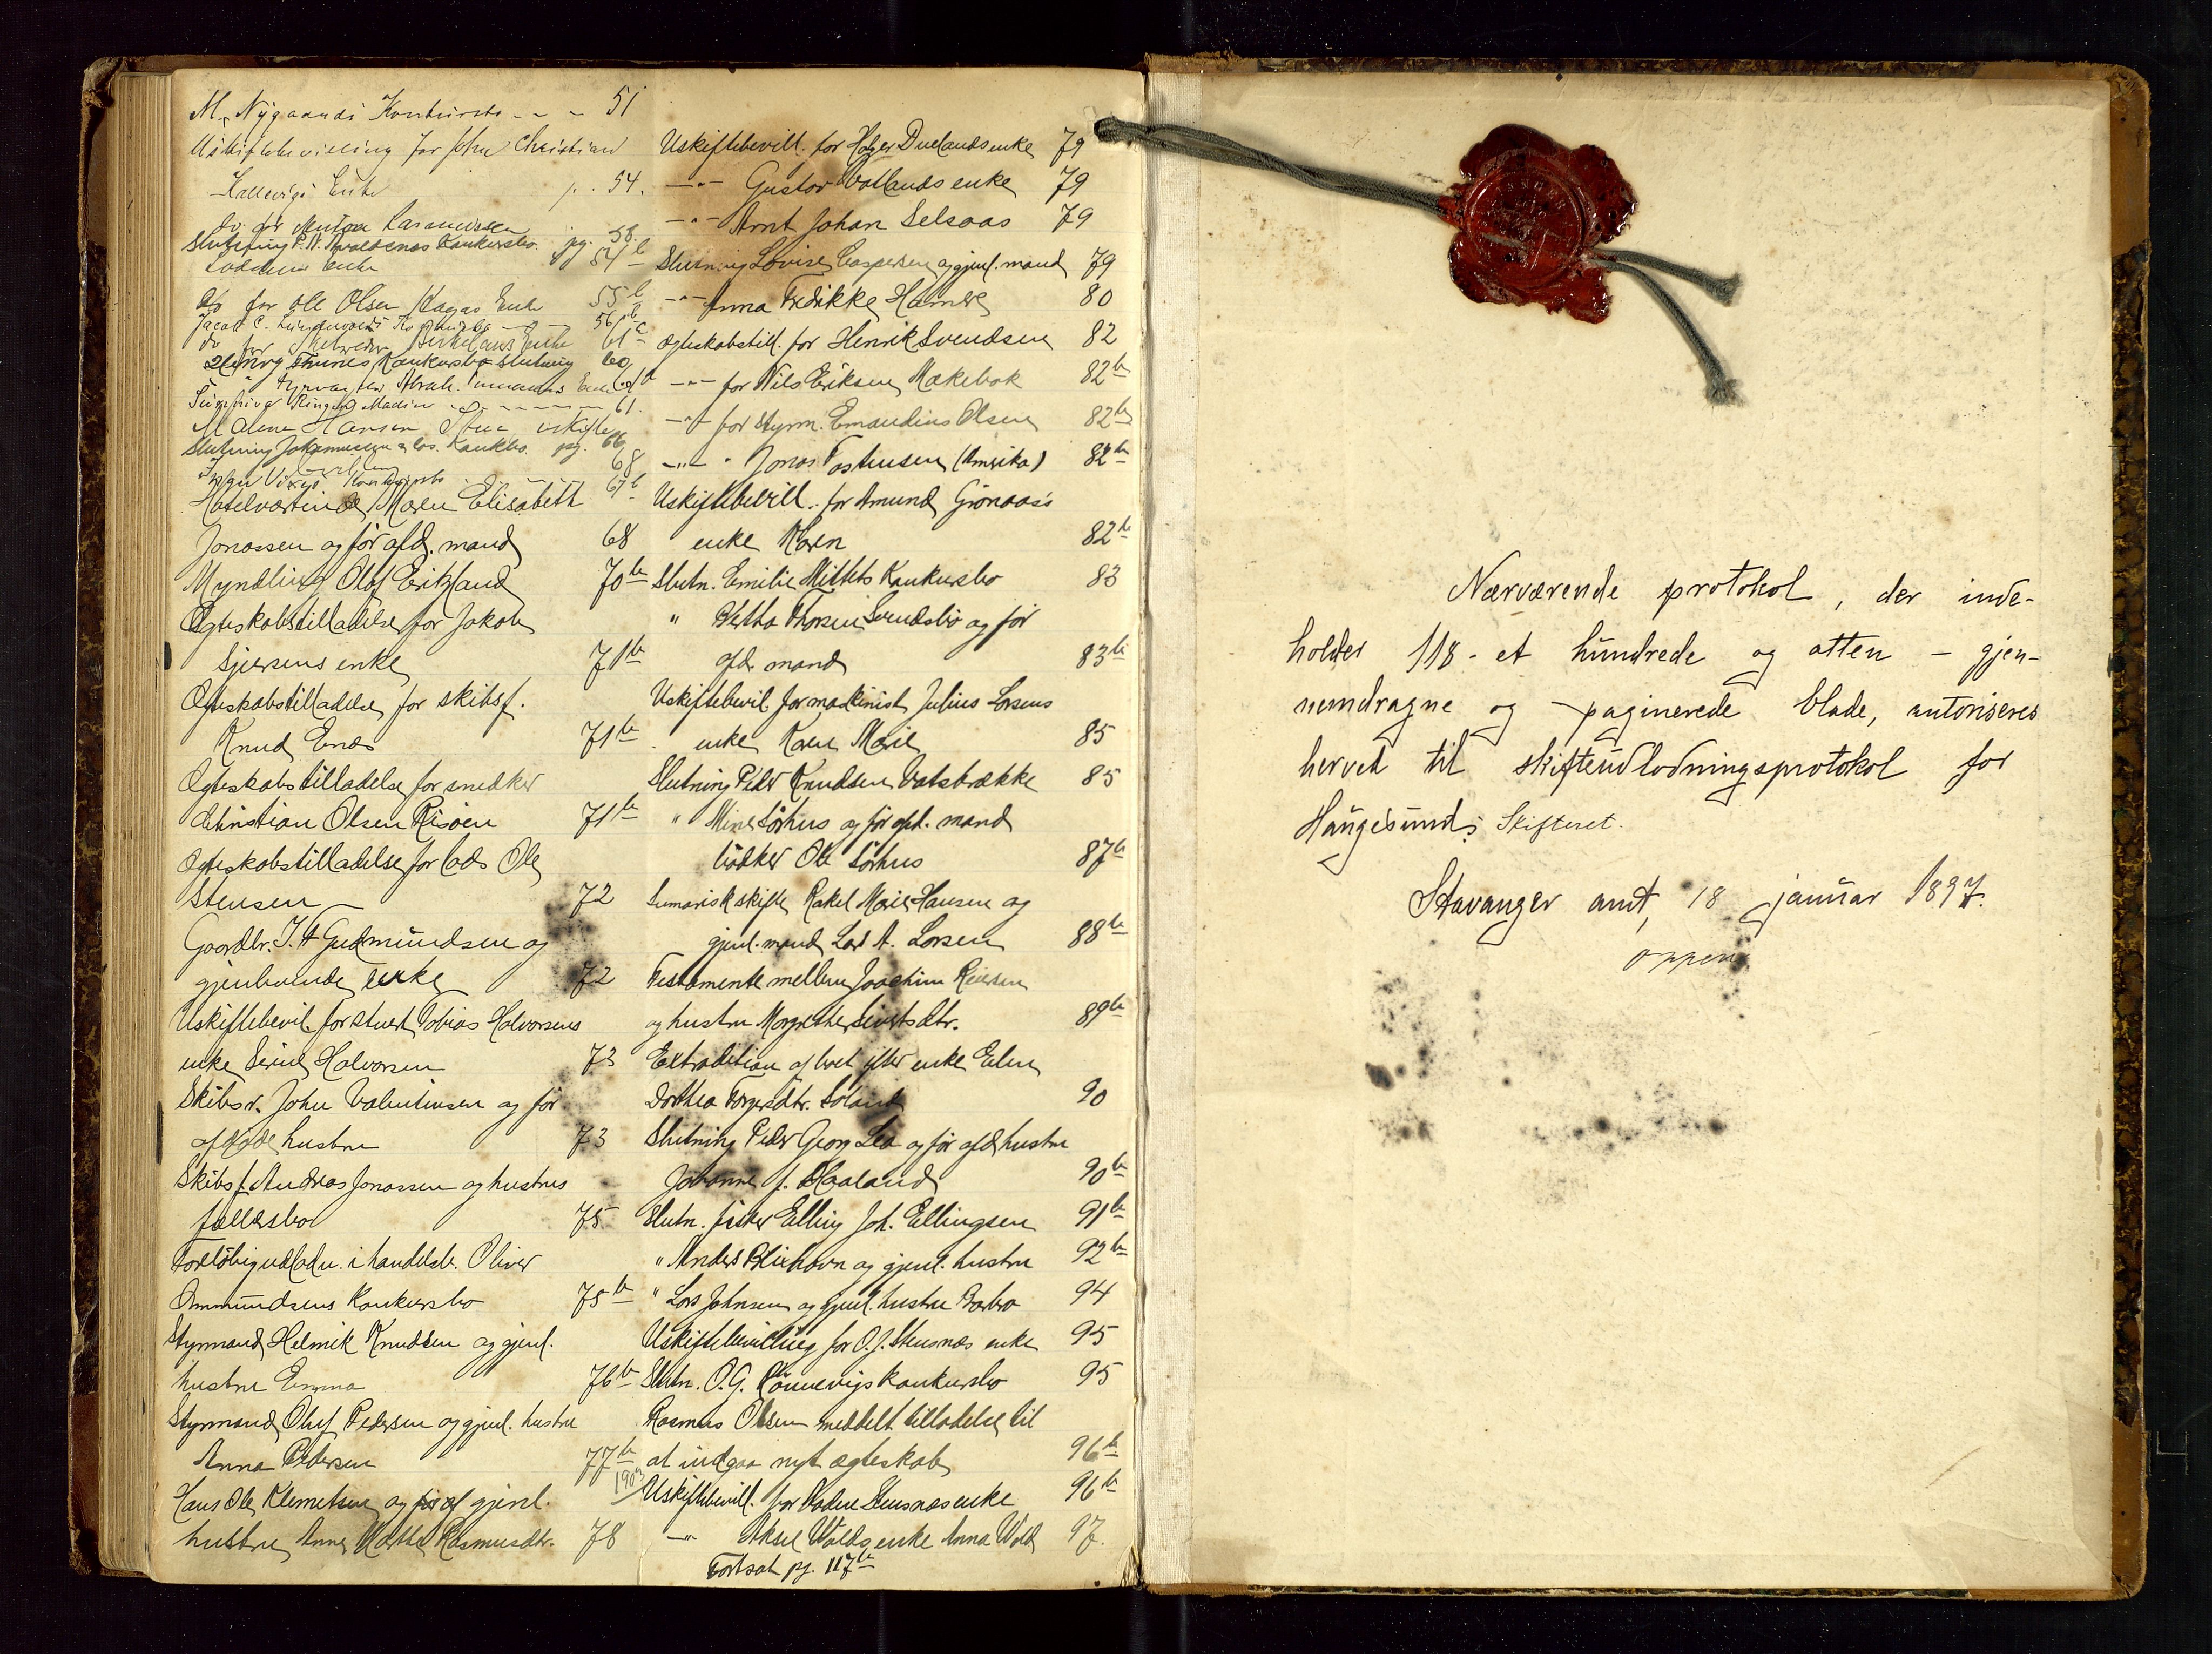 M. Nygaards Konkursbo - - - 51
Uskiftebevilling for John Christian
Enke p. 54.
do. for Rasmussen pg. 53.
Slutning P. N. Konkursbo. pg 54 b
Enke
do for Ole Olsen Hagas Enke 55 b
Jacob C. 56 b
do for Enke 61
Thunes Konkursbo Slutning 60
Enke
61.
Malene Hansen uskifte
Slutning Johannessen & cos. Konkbo. pg. 66
68
Konkursbo 67 b
Hotelværtinde Maren Elisabeth
Jonassen og før afd. mand 68
Myndling Olaf Eritzland 70 b
Ægteskabstilladelse for Jakob
Sjursens enke 71 b
Ægteskabstilladelse for skibsf.
Knud Enæs 71 b
Ægteskabstilladelse for snedker
Christian Olsen Risøen 71 b
Ægteskabstilladelse for lods Ole
Stensen 72
Gaardbr. J. A Gudmundsen og
gjenlevende enke 72
Uskiftebevil. for stuert Tobias Halvorsens
enke Serine Halvorsen 73
Skibsr. John Valentinsen og før
afdøde hustru 73
Skibsf. Andreas Jonassen og hustrus
fællesbo 75
Forløbig udlodn. i handelsb. Oliver
Ommundsens Konkursbo 75 b
Styrmand Helmik Knudsen og gjenl.
hustru Emma 76 b
Styrmand Oluf Pedersen og gjenl. hustru
Anna Pedersen 77 b
Hans Ole Klemetsen og før af gjenl.
hustru Anne Marthe Rasmusdtr. 78
Uskiftebevill. for Holger Duelands enke 79
-"- Gustav Vatlands enke 79
-"- Arnt Johan Selsaas 79
Slutning Lovise Caspersen og gjenl. mand 79
-"- Anna Fredrikke Hamre 80
Ægteskabstill. for Henrik Svendsen 82
-"- for Nils Eriksen Makebak 82 b
-"- for Styrm. Emandius Olsen 82 b
-"- " Jonas Tostensen (Amerika) 82 b
Uskiftebevill. for Amund Grønaas's
enke Karen 82 b
Slutn. Emilie Mittets Konkursbo 83
" Bertha Thorsen Svendsbø og før
afd. mand 83 b
Uskiftebevil. for maskinist Julius Larsens
enke Karen Marie 85
Slutning Peder Knudsen Vatsbrække 85
" Mine Sørhus og før afd. mand
bødker Ole Sørhus 87 b
Sumarisk skifte Rakel Marie Hansen og
gjenl. mand Lars A. Larsen 88 b
Testamente mellem Joachim Reiersen
og hustru Margrethe Sivertsdtr. 89 b
Extradition af boet efter enke Elen
Dorthea Torgersdtr. Søland 90
Slutning Peder Georg Lea og før afd hustru
Johanne f. Haaland 90 b
Slutn. fisker Elling Joh. Ellingsen 91 b
" Anders Bliehavn og gjenl. hustru 92 b
" Lars Johnsen og gjenl. hustru Barbro 94
Uskiftebevilling for O. J. Stensnæs enke 95
Slutn. O. G. Rønnevigs konkursbo 95
Rasmus Olsen meddelt tilladelse til
at indgaa nyt ægteskab 96 b
1903 Uskiftebevill. for Stensnæs enke 96 b
-"- Aksel Wolds enke Anna Wold 97.
Fortsat pg. 117 b
Nærværende protokol, der inde-
holder 118 - et hundrede og atten - gjen-
nemdragne og paginerede blade, autoriseres
herved til skifteudlodningsprotokol for
Haugesunds Skifteret.
Stavanger amt, 18 januar 1897.
Oppen